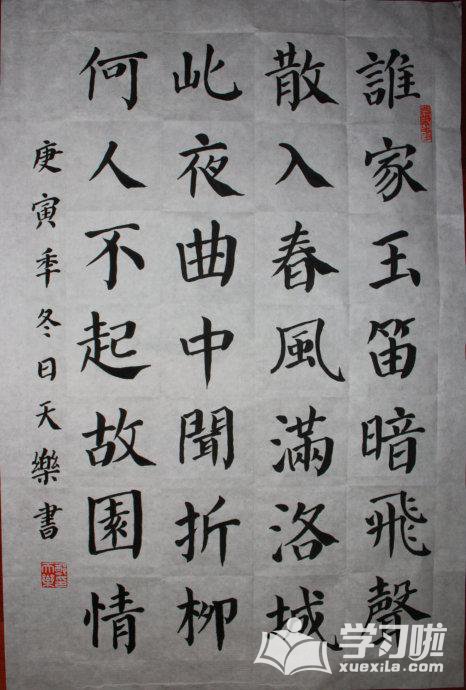 誰家玉笛暗飛聲
散入春風滿洛城
此夜曲中聞折柳
何人不起故園情
庚寅季冬日天樂書
学习啦
xuexila.com